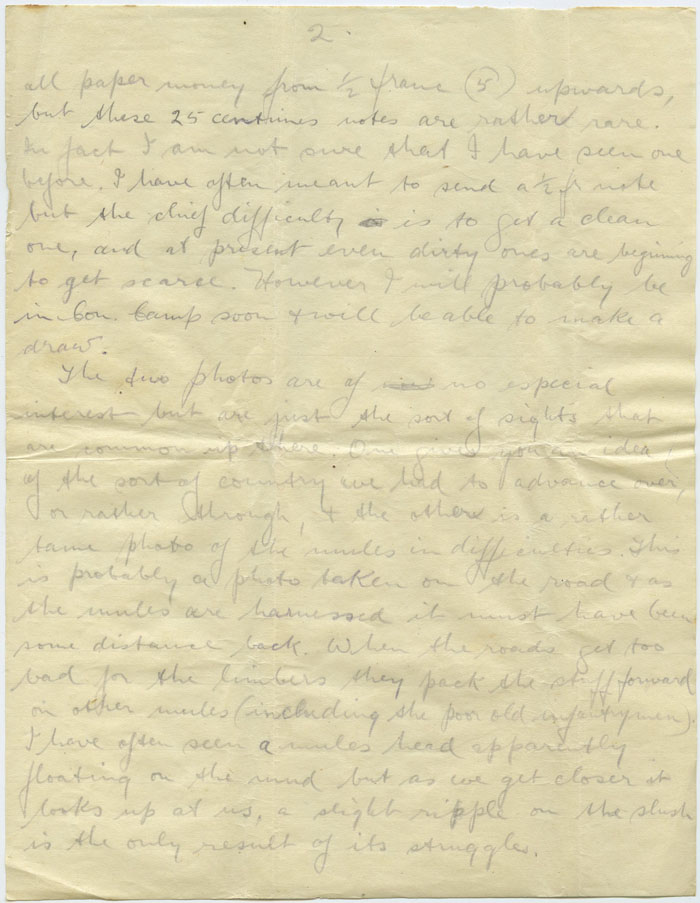 2.
all paper money from ½ franc (5) upwards,
but these 25 centimes notes are rather rare.
In fact I am not sure that I have seen one
before. I have often meant to send a ½ fr note
but the chief difficulty is is to get a clean
one, and at present even dirty ones are begining
to get scarce. However I will probably be
in Con. Camp soon & will be able to make a
draw.
The two photos are of no especial
interest but are just the sort of sights that
are common up there. One gives you an idea
of the sort of country we had to advance over,
or rather through, & the other is a rather
tame photo of the mules in difficulties. This
is probably a photo taken on the road & as
the mules are harnessed it must have been
some distance back. When the roads get too
bad for the limbers they pack the stuff forward
on other mules (including the poor old infantrymen).
I have often seen a mules head apparently
floating on the mud but as we get closer it
looks up at us, a slight ripple on the slush
is the only result of its struggles.